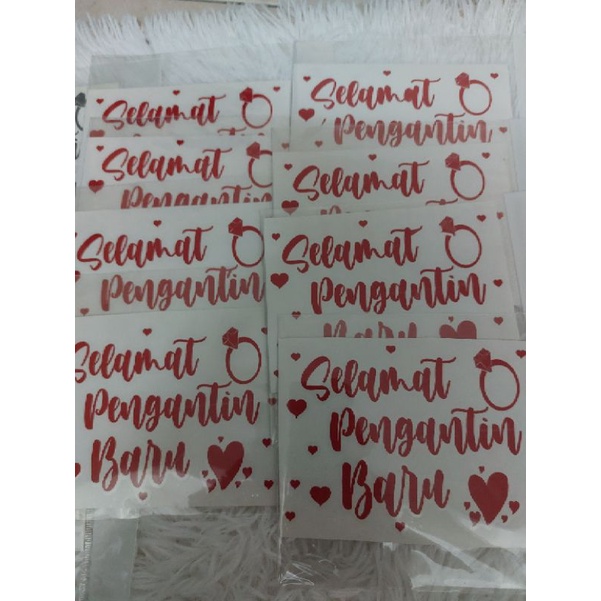 Selamat
Selamat
Selamat
Pengantin
Selamat
Pengantin
Baru
Selamat
Pengantin
Selamat
Selamat
Pengantin
Baru
Selamat
Pengantin
Baru